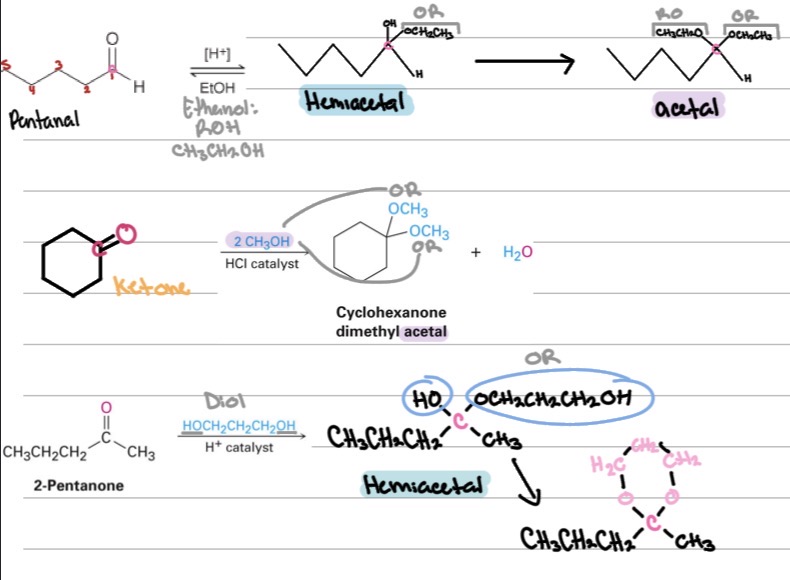 O
5 4 3 2 1 H
Pentanal
[H+]
EtOH
Ethanol:
ROH
CH3CH2OH
OR
OH
OCH2CH3
H
Hemiacetal
RO OR
CH3CH2O OCH2CH3
H
acetal
C O
Ketone
2 CH3OH
HCl catalyst
OR
OCH3
OCH3
OR
+ H2O
Cyclohexanone
dimethyl acetal
O
C
CH3CH2CH2 CH3
2-Pentanone
Diol
HOCH2CH2CH2OH
H+ catalyst
OR
HO OCH2CH2CH2OH
C
CH3CH2CH2 CH3
Hemiacetal
CH2
H2C CH2
O O
C
CH3CH2CH2 CH3